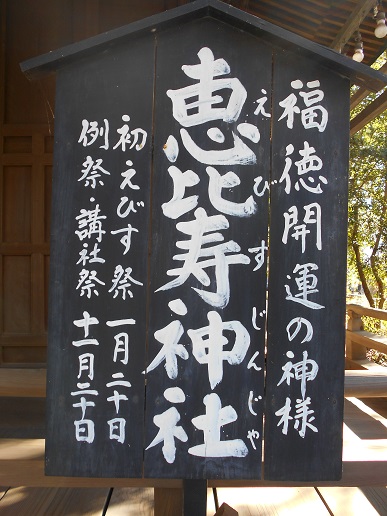 福徳開運の神様
恵比寿神社
えびすじんじゃ
初えびす祭 一月二十日
例祭・講社祭 十一月二十日